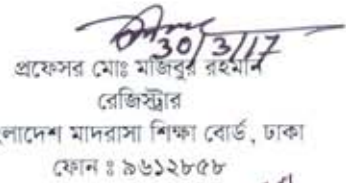 30/3/17
প্রফেসর মোঃ মজিবুর রহমান
রেজিস্ট্রার
লাদেশ মাদরাসা শিক্ষা বোর্ড, ঢাকা
ফোন ঃ ৯৬১২৮৫৮